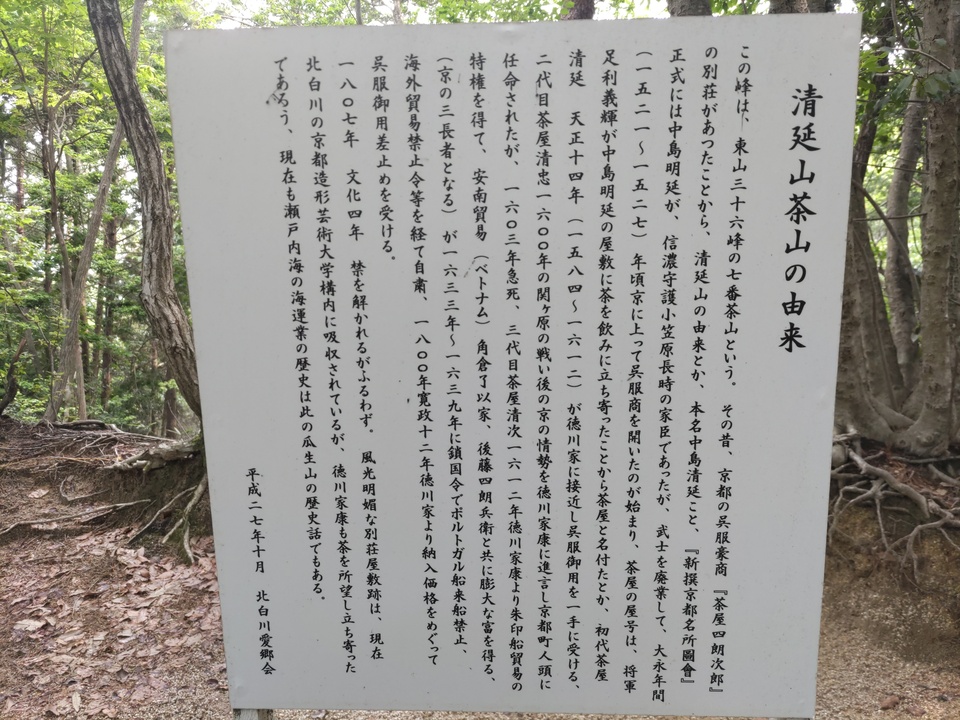 清延山茶山の由来
この峰は、東山三十六峰の七番茶山という。　その昔、京都の呉服豪商『茶屋四朗次郎』
の別荘があったことから、清延山の由来とか、本名中島清延こと、『新撰京都名所圖會』
正式には中島明延が、信濃守護小笠原長時の家臣であったが、武士を廃業して、大永年間
（一五二一～一五二七）年頃京に上って呉服商を開いたのが始まり、茶屋の屋号は、将軍
足利義輝が中島明延の屋敷に茶を飲みに立ち寄ったことから茶屋と名付たとか、初代茶屋
清延　天正十四年（一五八四～一六一二）が徳川家に接近し呉服御用を一手に受ける、
二代目茶屋清忠一六〇〇年の関ヶ原の戦い後の京の情勢を徳川家康に進言し京都町人頭に
任命されたが、一六〇三年急死、三代目茶屋清次一六一二年徳川家康より朱印船貿易の
特権を得て、安南貿易（ベトナム）角倉了以家、後藤四朗兵衛と共に膨大な富を得る、
（京の三長者となる）が一六三三年～一六三九年に鎖国令でポルトガル船来船禁止、
海外貿易禁止令等を経て自粛、一八〇〇年寛政十二年徳川家より納入価格をめぐって
呉服御用差止めを受ける。
一八〇七年　文化四年　禁を解かれるがふるわず。　風光明媚な別荘屋敷跡は、現在
北白川の京都造形芸術大学構内に吸収されているが、徳川家康も茶を所望し立ち寄った
であろう、現在も瀬戸内海の海運業の歴史は此の瓜生山の歴史話でもある。
平成二七年十月　北白川愛郷会